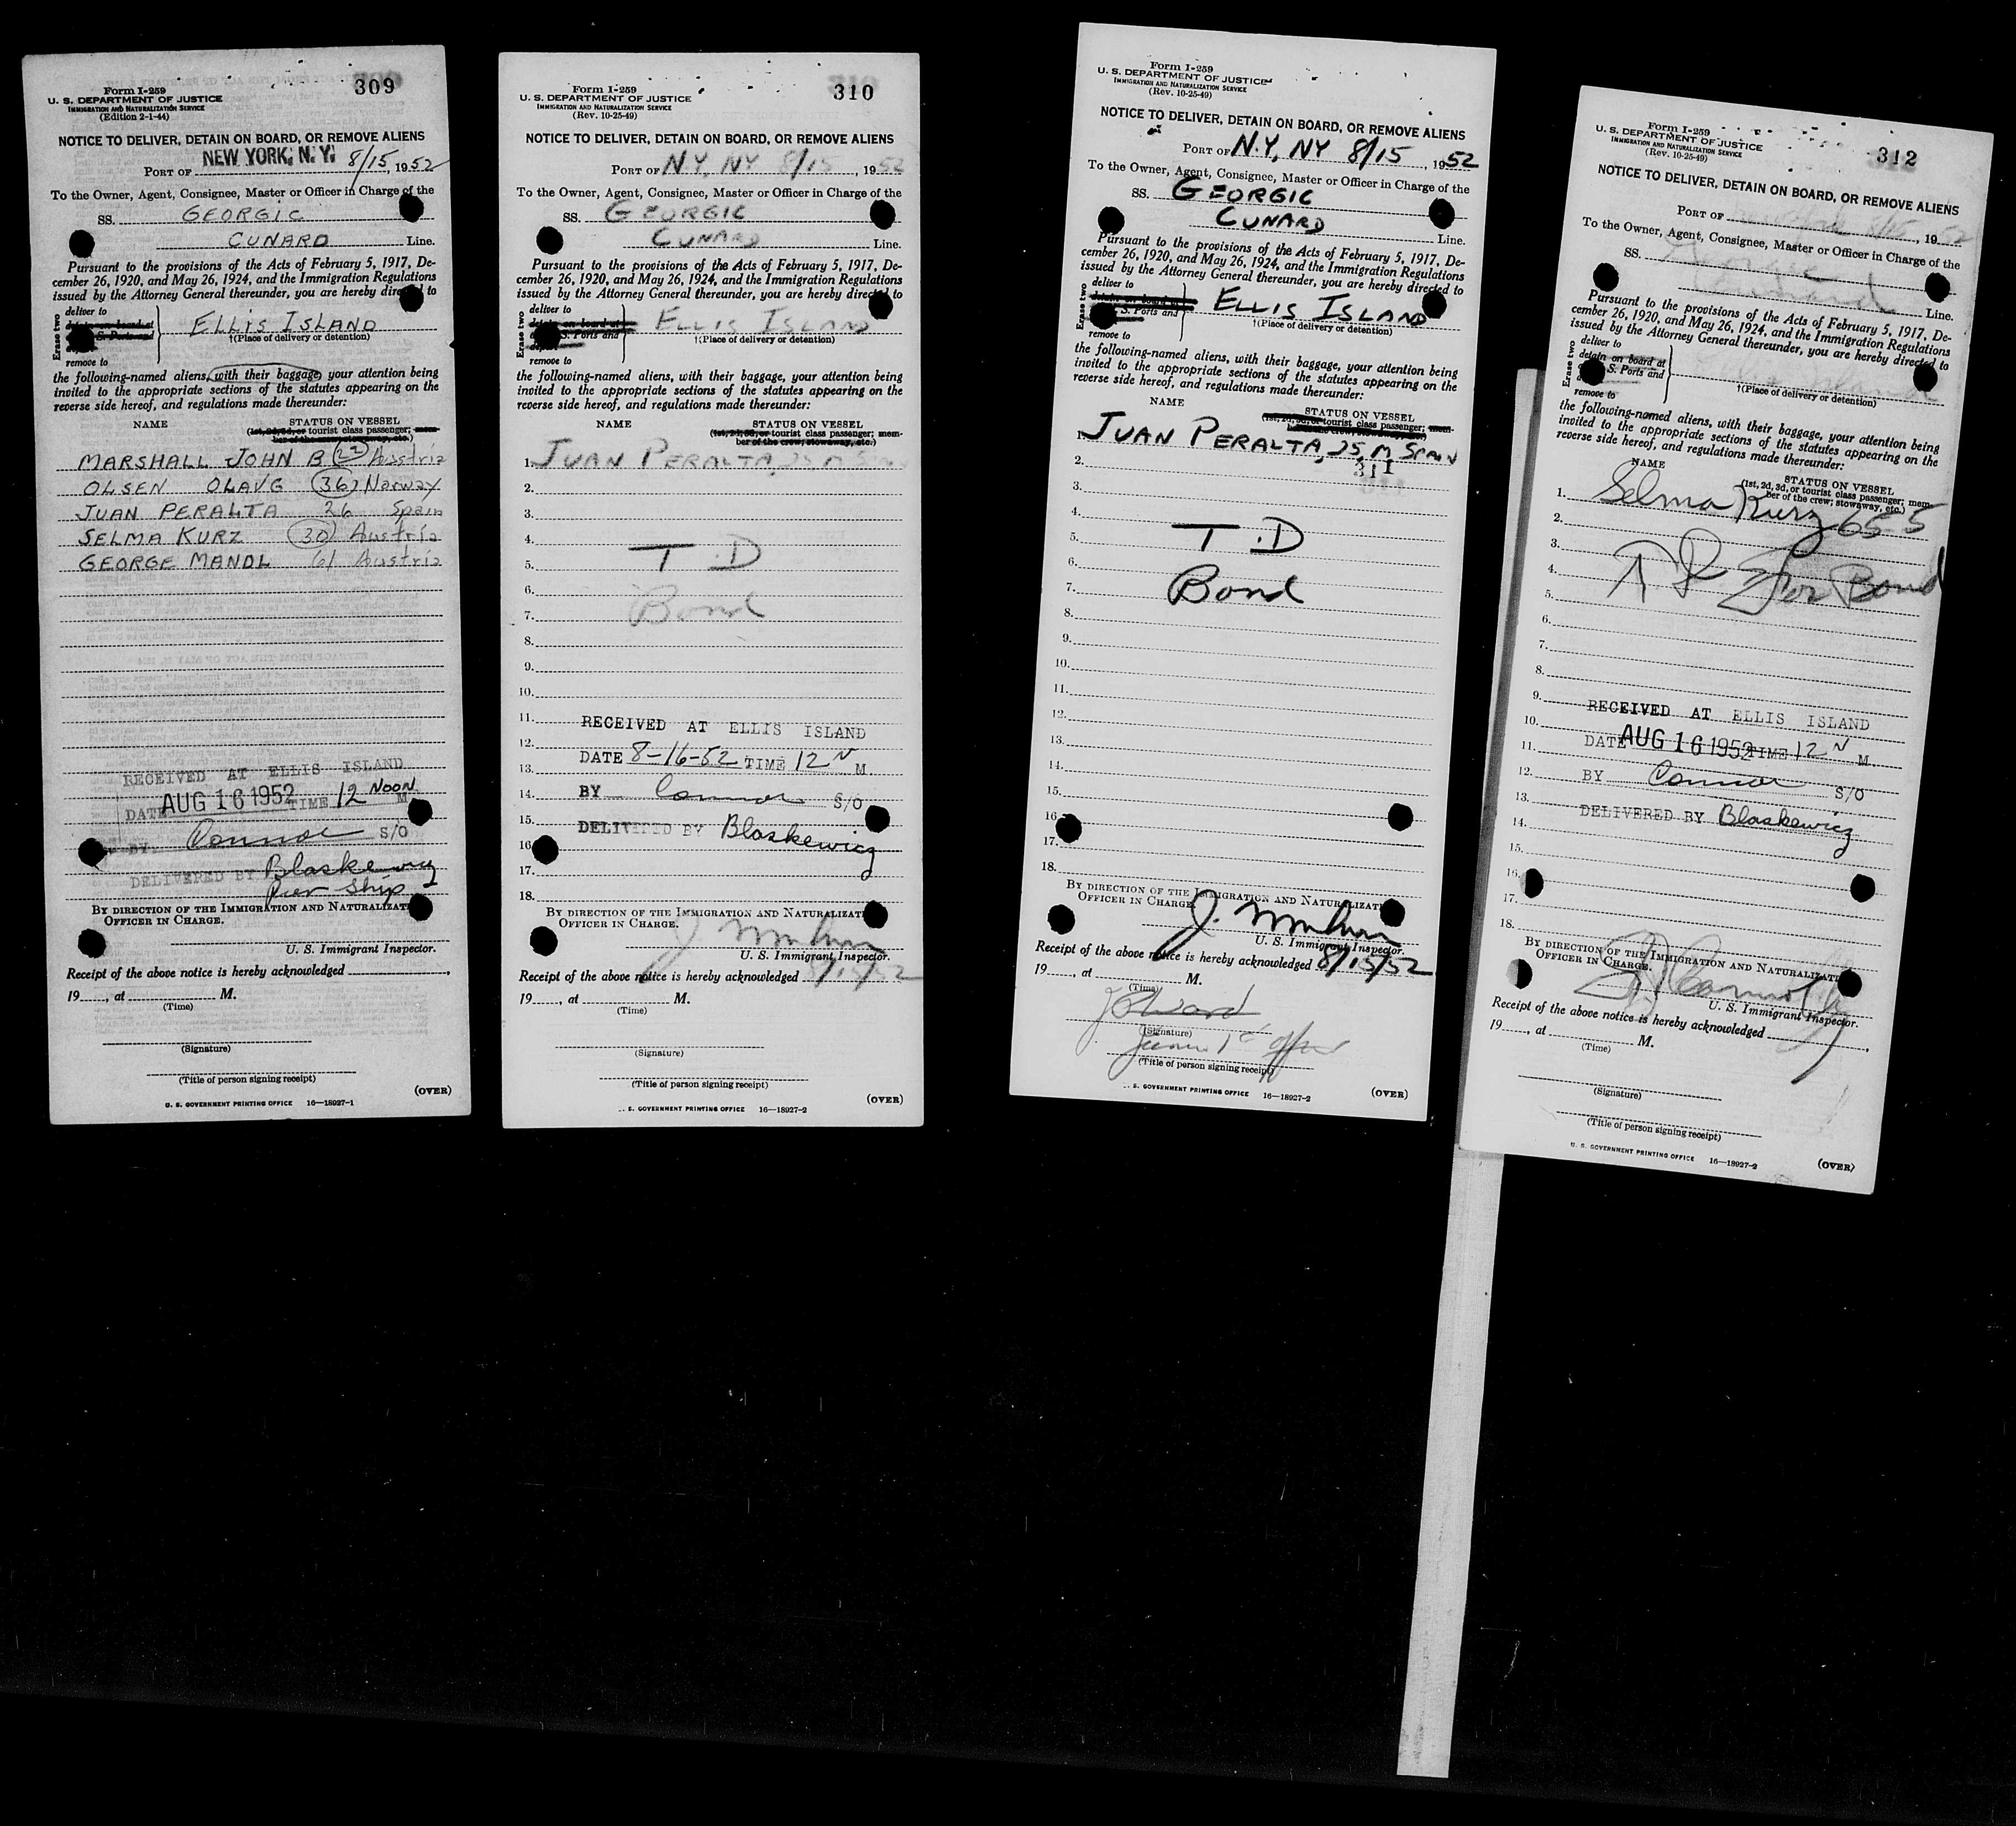 309
Form I-259
U. S. DEPARTMENT OF JUSTICE
IMMIGRATION AND NATURALIZATION SERVICE
(Edition 2-1-44)
NOTICE TO DELIVER, DETAIN ON BOARD, OR REMOVE ALIENS
PORT OF NEW YORK, N. Y. 8/15, 1952
To the Owner, Agent, Consignee, Master or Officer in Charge of the
SS. GEORGIC
CUNARD Line.
Pursuant to the provisions of the Acts of February 5, 1917, De-
cember 26, 1920, and May 26, 1924, and the Immigration Regulations
issued by the Attorney General thereunder, you are hereby directed to
Erase two
deliver to
detain on board at
S. Ports and
remove to
ELLIS ISLAND
†(Place of delivery or detention)
the following-named aliens, with their baggage, your attention being
invited to the appropriate sections of the statutes appearing on the
reverse side hereof, and regulations made thereunder:
NAME STATUS ON VESSEL
(1st, 2d, 3d, or tourist class passenger; mem-
ber of the crew; stowaway, etc.)
MARSHALL JOHN B 22 Austria
OLSEN OLAV G 36 Norway
JUAN PERALTA 26 Spain
SELMA KURZ 30 Austria
GEORGE MANDL 61 Austria
RECEIVED AT ELLIS ISLAND
DATE AUG 16 1952 TIME 12 NOON M
BY Connor S/O
DELIVERED BY Blaskewicz
Pier Ship
BY DIRECTION OF THE IMMIGRATION AND NATURALIZATI
OFFICER IN CHARGE.
U. S. Immigrant Inspector.
Receipt of the above notice is hereby acknowledged
19, at M.
(Time)
(Signature)
(Title of person signing receipt)
(OVER)
U. S. GOVERNMENT PRINTING OFFICE 16—18927-1
310
Form I-259
U. S. DEPARTMENT OF JUSTICE
IMMIGRATION AND NATURALIZATION SERVICE
(Rev. 10-25-49)
NOTICE TO DELIVER, DETAIN ON BOARD, OR REMOVE ALIENS
PORT OF N.Y, NY 8/15, 1952
To the Owner, Agent, Consignee, Master or Officer in Charge of the
SS. GEORGIC
CUNARD Line.
Pursuant to the provisions of the Acts of February 5, 1917, De-
cember 26, 1920, and May 26, 1924, and the Immigration Regulations
issued by the Attorney General thereunder, you are hereby directed to
Erase two
deliver to
detain on board at
S. Ports and
remove to
ELLIS ISLAND
†(Place of delivery or detention)
the following-named aliens, with their baggage, your attention being
invited to the appropriate sections of the statutes appearing on the
reverse side hereof, and regulations made thereunder:
NAME STATUS ON VESSEL
(1st, 2d, 3d, or tourist class passenger; mem-
ber of the crew; stowaway, etc.)
1. JUAN PERALTA, 25, M, SPAIN
2.
3.
4.
5. T.D
6.
7. Bond
8.
9.
10.
11. RECEIVED AT ELLIS ISLAND
12. DATE 8-16-52 TIME 12 N M
13.
14. BY Connor S/O
15. DELIVERED BY Blaskewicz
16.
17.
18.
BY DIRECTION OF THE IMMIGRATION AND NATURALIZATI
OFFICER IN CHARGE.
U. S. Immigrant Inspector.
Receipt of the above notice is hereby acknowledged 8/15/52
19, at M.
(Time)
(Signature)
(Title of person signing receipt)
(OVER)
S. GOVERNMENT PRINTING OFFICE 16—18927-2
Form I-259
U. S. DEPARTMENT OF JUSTICE
IMMIGRATION AND NATURALIZATION SERVICE
(Rev. 10-25-49)
NOTICE TO DELIVER, DETAIN ON BOARD, OR REMOVE ALIENS
PORT OF N.Y, NY 8/15, 1952
To the Owner, Agent, Consignee, Master or Officer in Charge of the
SS. GEORGIC
CUNARD Line.
Pursuant to the provisions of the Acts of February 5, 1917, De-
cember 26, 1920, and May 26, 1924, and the Immigration Regulations
issued by the Attorney General thereunder, you are hereby directed to
Erase two
deliver to
detain on board at
S. Ports and
remove to
ELLIS ISLAND
†(Place of delivery or detention)
the following-named aliens, with their baggage, your attention being
invited to the appropriate sections of the statutes appearing on the
reverse side hereof, and regulations made thereunder:
NAME STATUS ON VESSEL
(1st, 2d, 3d, or tourist class passenger; mem-
JUAN PERALTA, 25, M, SPAIN
2. 311
3.
4.
5. T.D
6.
7. Bond
8.
9.
10.
11.
12.
13.
14.
15.
16.
17.
18.
BY DIRECTION OF THE IMMIGRATION AND NATURALIZATI
OFFICER IN CHARGE.
U. S. Immigrant Inspector.
Receipt of the above notice is hereby acknowledged 8/15/52
19, at M.
(Time)
(Signature)
(Title of person signing receipt)
(OVER)
S. GOVERNMENT PRINTING OFFICE 16—18927-2
312
Form I-259
U. S. DEPARTMENT OF JUSTICE
IMMIGRATION AND NATURALIZATION SERVICE
(Rev. 10-25-49)
NOTICE TO DELIVER, DETAIN ON BOARD, OR REMOVE ALIENS
PORT OF , 1952
To the Owner, Agent, Consignee, Master or Officer in Charge of the
SS. Georgic
Cunard Line.
Pursuant to the provisions of the Acts of February 5, 1917, De-
cember 26, 1920, and May 26, 1924, and the Immigration Regulations
issued by the Attorney General thereunder, you are hereby directed to
Erase two
deliver to
detain on board at
S. Ports and
remove to
†(Place of delivery or detention)
the following-named aliens, with their baggage, your attention being
invited to the appropriate sections of the statutes appearing on the
reverse side hereof, and regulations made thereunder:
NAME STATUS ON VESSEL
(1st, 2d, 3d, or tourist class passenger; mem-
ber of the crew; stowaway, etc.)
1. Selma Kurz 65-5
2.
3.
4. For Bond
5.
6.
7.
8.
9. RECEIVED AT ELLIS ISLAND
10.
11. DATE AUG 16 1952 TIME 12 N M
12. BY Connor S/O
13. DELIVERED BY Blaskewicz
14.
15.
16.
17.
18.
BY DIRECTION OF THE IMMIGRATION AND NATURALIZATI
OFFICER IN CHARGE.
U. S. Immigrant Inspector.
Receipt of the above notice is hereby acknowledged
19, at M.
(Time)
(Signature)
(Title of person signing receipt)
(OVER)
U. S. GOVERNMENT PRINTING OFFICE 16—18927-2